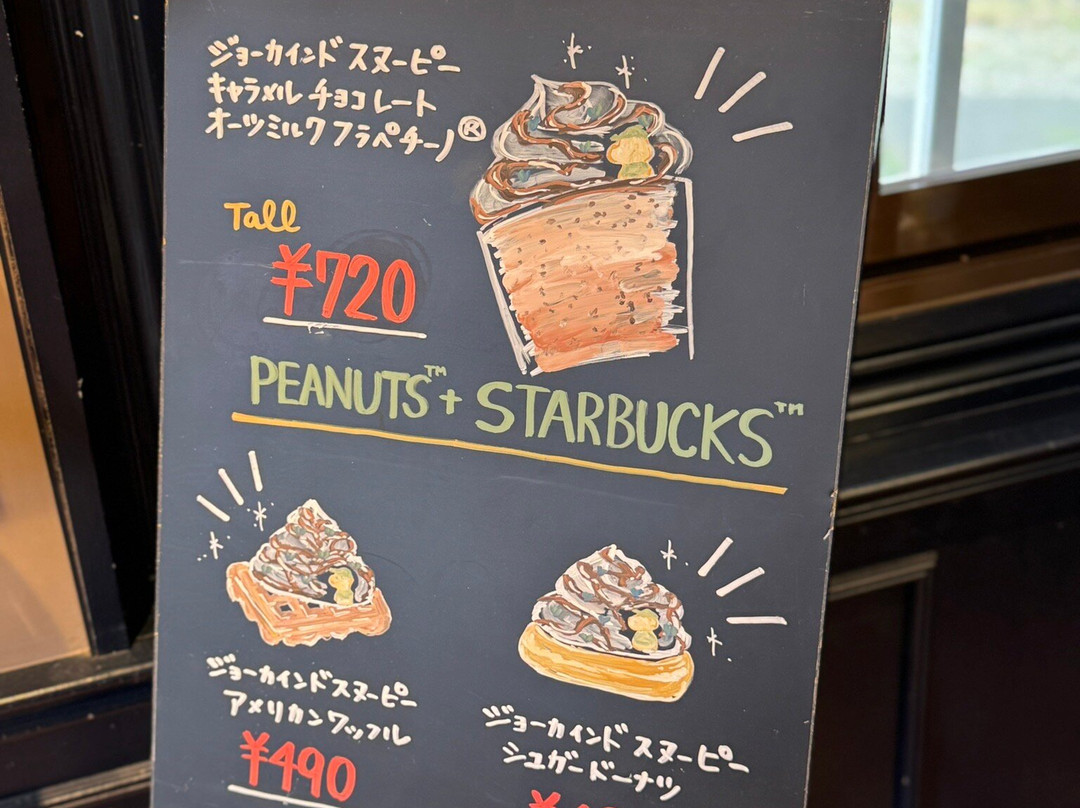 ジョーカインド スヌーピー
キャラメル チョコレート
オーツミルク フラペチーノ®
Tall
¥720
PEANUTS™ + STARBUCKS™
ジョーカインドスヌーピー
アメリカンワッフル
¥490
ジョーカインド スヌーピー
シュガードーナツ